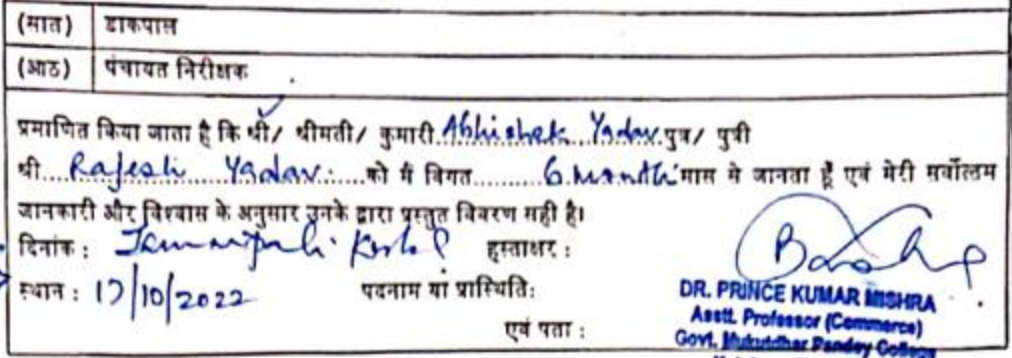 (सात) डाकपाल
(आठ) पंचायत निरीक्षक
प्रमाणित किया जाता है कि श्री/ श्रीमती/ कुमारी..Abhishek Yadav.पुत्र/ पुत्री
श्री.....Rajesh Yadav.....को मैं विगत.........6.month मास से जानता हूँ एवं मेरी सर्वोत्तम
जानकारी और विश्वास के अनुसार उनके द्वारा प्रस्तुत विवरण सही है।
दिनांक : हस्ताक्षर :
स्थान : 17/10/2022 पदनाम या प्रास्थिति:
एवं पता :
DR. PRINCE KUMAR MISHRA
Asstt. Professor (Commerce)
Govt. Mukutdhar Pandey College